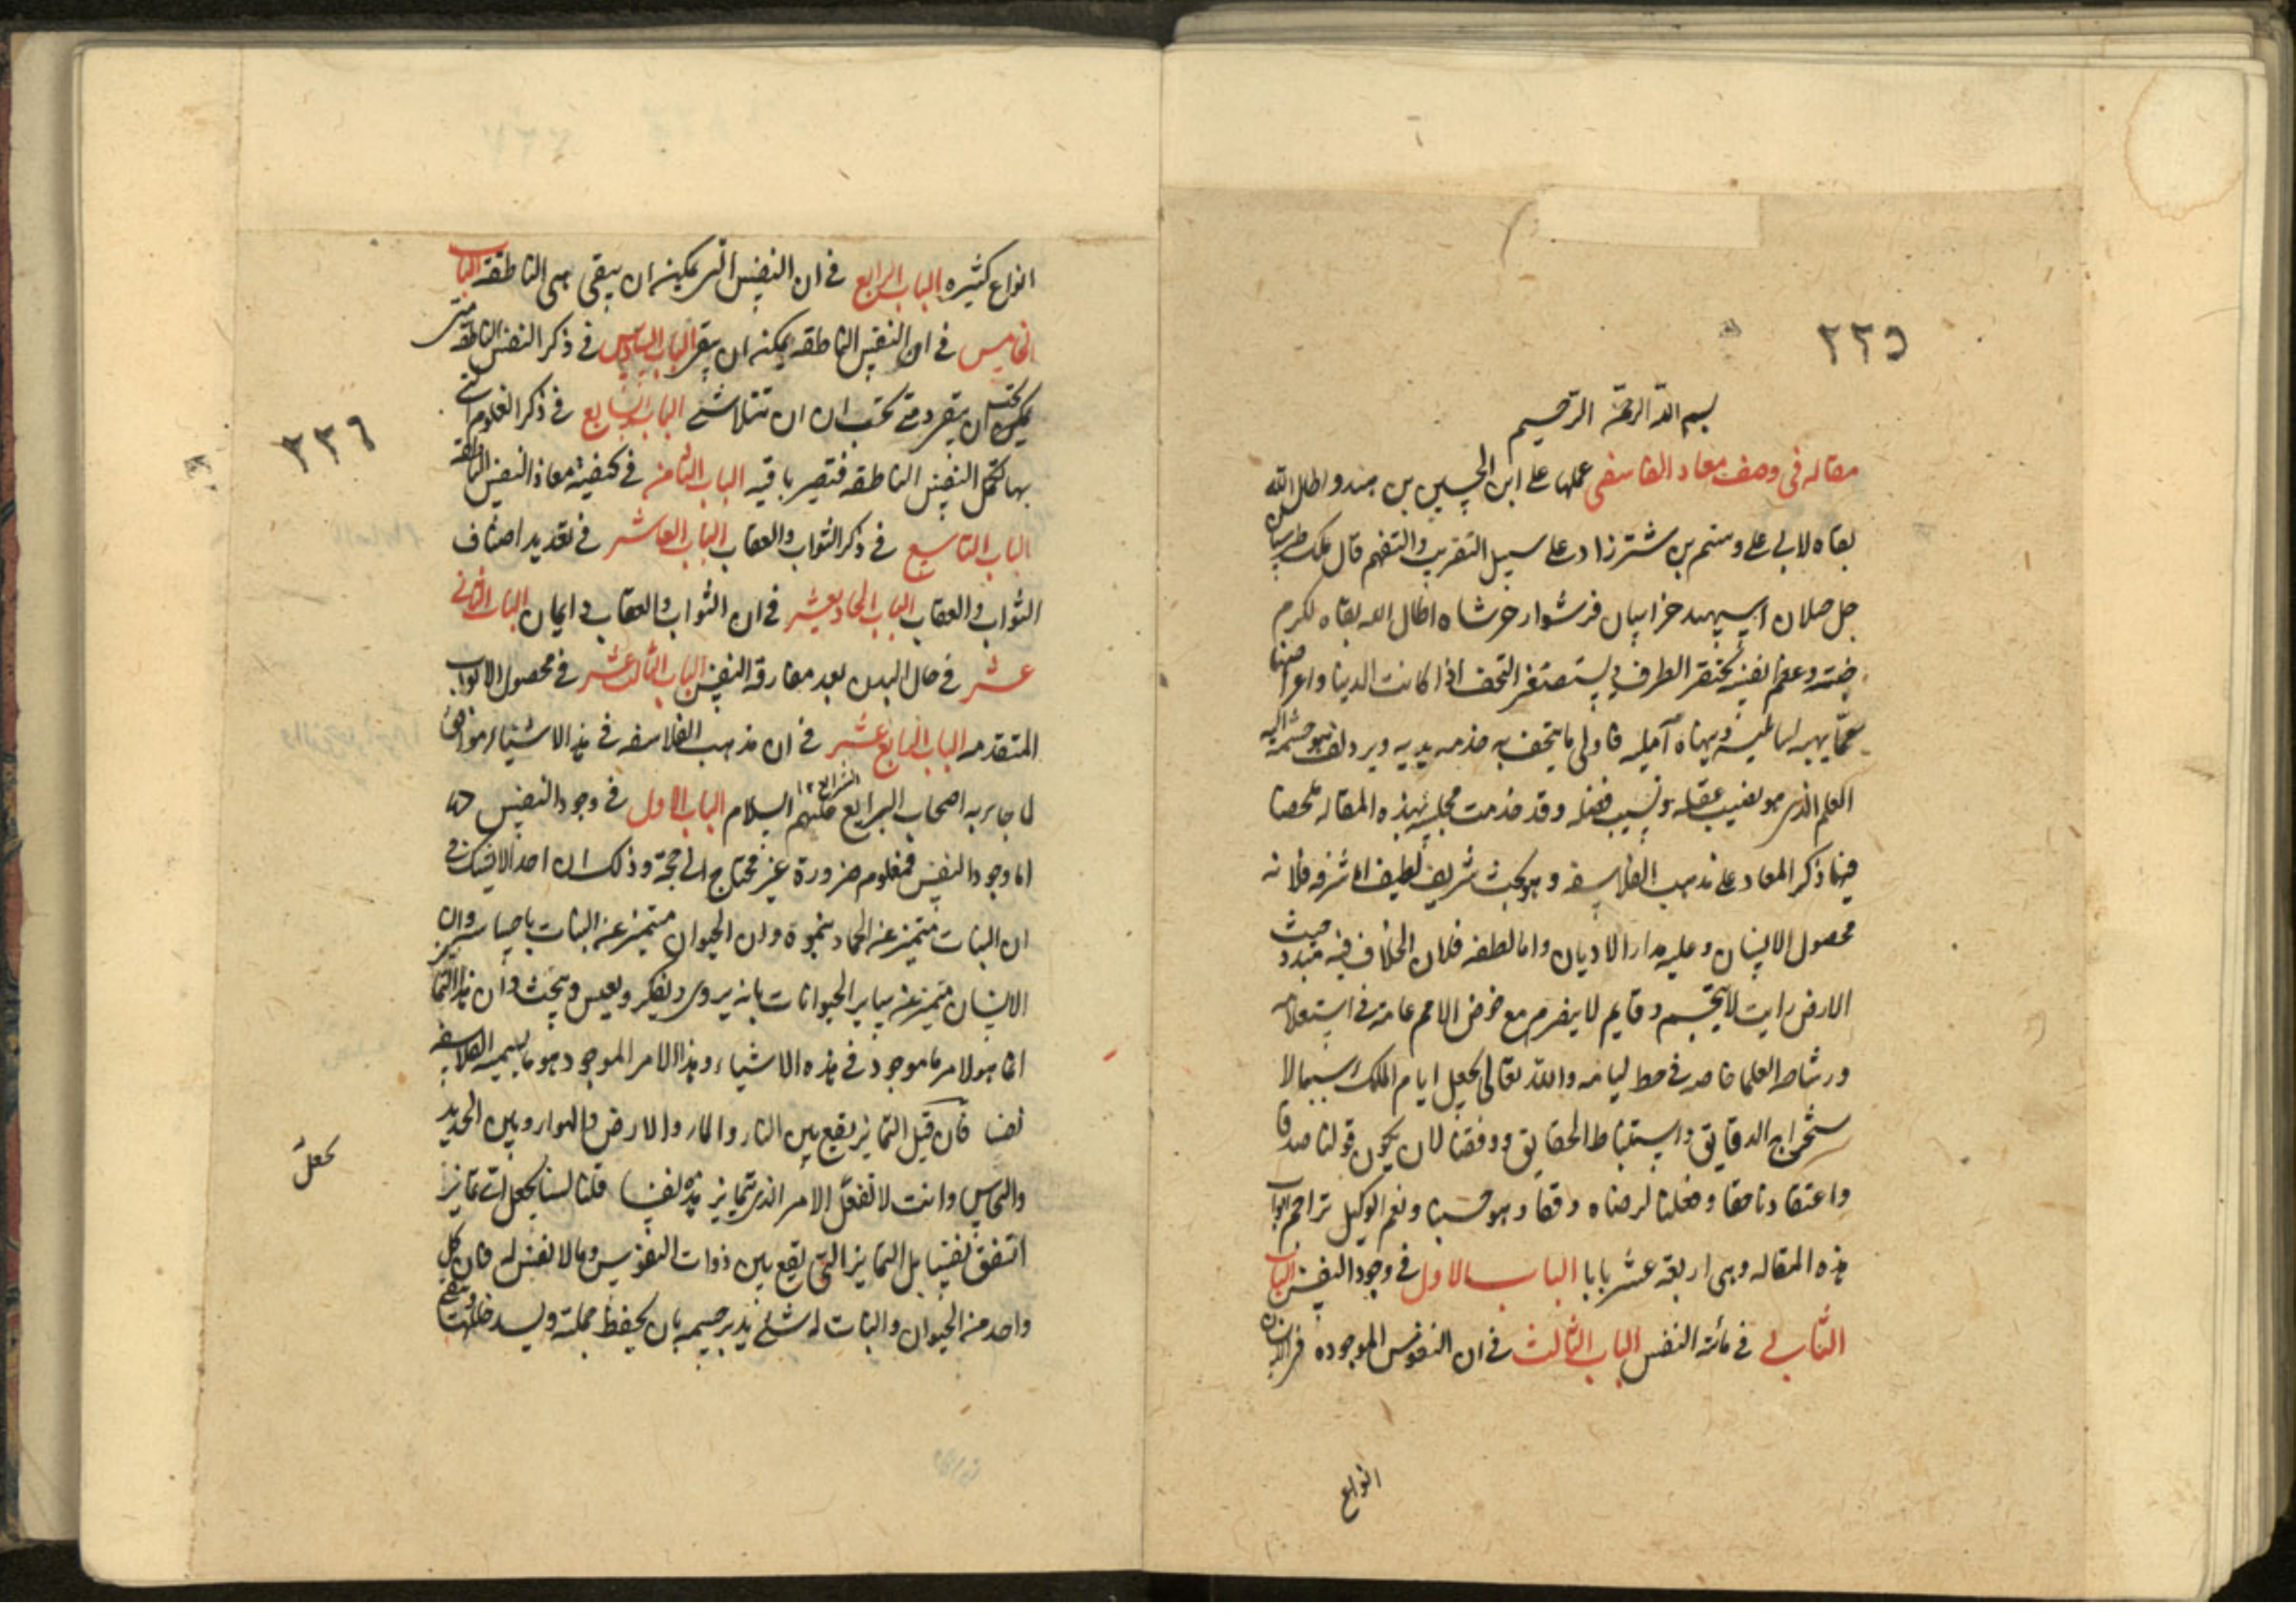 ٢٣٥
بسم الله الرحمن الرحيم
مقاله فى وصف معاد الفلاسفى عملها على ابن الحسين بن هندو اطال الله
بقاه لابى على وستم بن شترزاد على سبيل التقريب والتفهم قال ملك طبرستان
جل جلاله اسپهبد خراسان فرشوارجرشاه اطال الله بقاه لكرم
وعظم نفسه يحتقر الطرف ويستصغر التحف اذا كانت الدنيا واعراضها
فاولى ما يتحف به خدمه يديه
العلم الذى هو نصيب عقله ونسيب فضله وقد خدمت مجلسه بهذه المقاله ملخصا
فيها ذكر المعاد على مذهب الفلاسفه وهو بحث شريف لطيف اما شرفه فلانه
محصول الانسان وعليه مدار الاديان واما لطفه فلان الخلاف فيه حيث
الارض رايت لا وقايم لا مع خوض الامم عامة فى استعلامه
العلما والله تعالى يجعل ايام الملك سببا لا
ستخراج الدقايق واستنباط الحقايق ووفقنا لان يكون قولنا صدقا
واعتقادنا حقا وفعلنا لرضاه وفقا وهو حسبنا ونعم الوكيل تراجم ابواب
هذه المقاله وهى اربعة عشر بابا الباب الاول فى وجود النفس الباب
الثانى فى مائة النفس الباب الثالث فى ان النفوس الموجوده
انواع
انواع كثيره الباب الرابع فى ان النفس التى يمكن ان يبقى هى الناطقة الباب
الخامس فى ان النفس الناطقه يمكنه ان يبقى الباب السادس فى ذكر النفس الناطقة متى
يمكن ان يبقى ومتى يجب ان تتلاشى الباب السابع فى ذكر العلوم التى
بها تكمل النفس الناطقه فتصير باقيه الباب الثامن فى كيفية معاد النفس الناطقه
الباب التاسع فى ذكر الثواب والعقاب الباب العاشر فى تعديد اصناف
الثواب والعقاب الباب الحاديعشر فى ان الثواب والعقاب الباب الثانى
عشر فى حال البدن بعد مفارقة النفس الباب الثالث عشر فى محصول الابواب
المتقدمه الباب الرابع عشر فى ان مذهب الفلاسفه فى هذه الاشياء موافق
لما جاء به اصحاب الشرايع عليهم السلام الباب الاول فى وجود النفس
اما وجود النفس فمعلوم ضرورة غير محتاج الى حجة وذلك ان احدا لا يشك فى
ان النبات متميز عن الجماد بنموه وان الحيوان متميز عن النبات وان
الانسان متميز عن ساير الحيوانات بانه يروى ويفكر ويقيس ويبحث وان هذا التمايز
انما هو لامر ما موجود فى هذه الاشياء وهذا الامر الموجود هو ما يسميه الفلاسفه
نفسا فان قيل التمايز يقع بين النار والماء والارض والهواء وبين الحديد
والنحاس وانت لا تجعل الامر الذى تمايز به نفسا قلنا لسنا نجعل اى تمايز
اتفق نفسا بل التمايز التى يقع بين ذوات النفوس وما لا نفس له فان كل
واحد من الحيوان والنبات له شئ يدبر جسمه بان يحفظ جملته ويسد
٢٣٦
تجعل